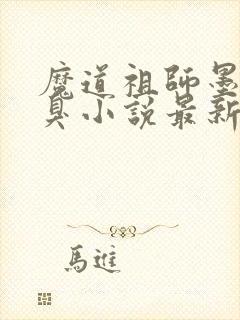 魔道祖師墨
臭小說最新
馬進